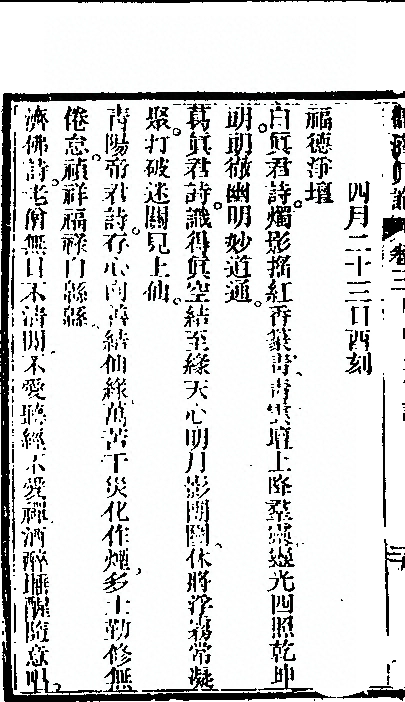 卷三
四月二十三日酉刻
福德淨壇
白眞君詩燭影搖紅香篆靑靑雲壇上降羣靈燈光四照乾坤
朗朗徹幽明妙道通
葛眞君詩識得眞空結至緣天心明月影團圓休將浮靄常凝
聚打破迷關見上仙
靑陽帝君詩存心向善結仙緣萬苦千災化作煙多士勤修無
倦怠禎祥福祿自緜緜
濟佛詩老僧無日不淸閒不愛聽經不愛禪酒醉壚醒隨意唱